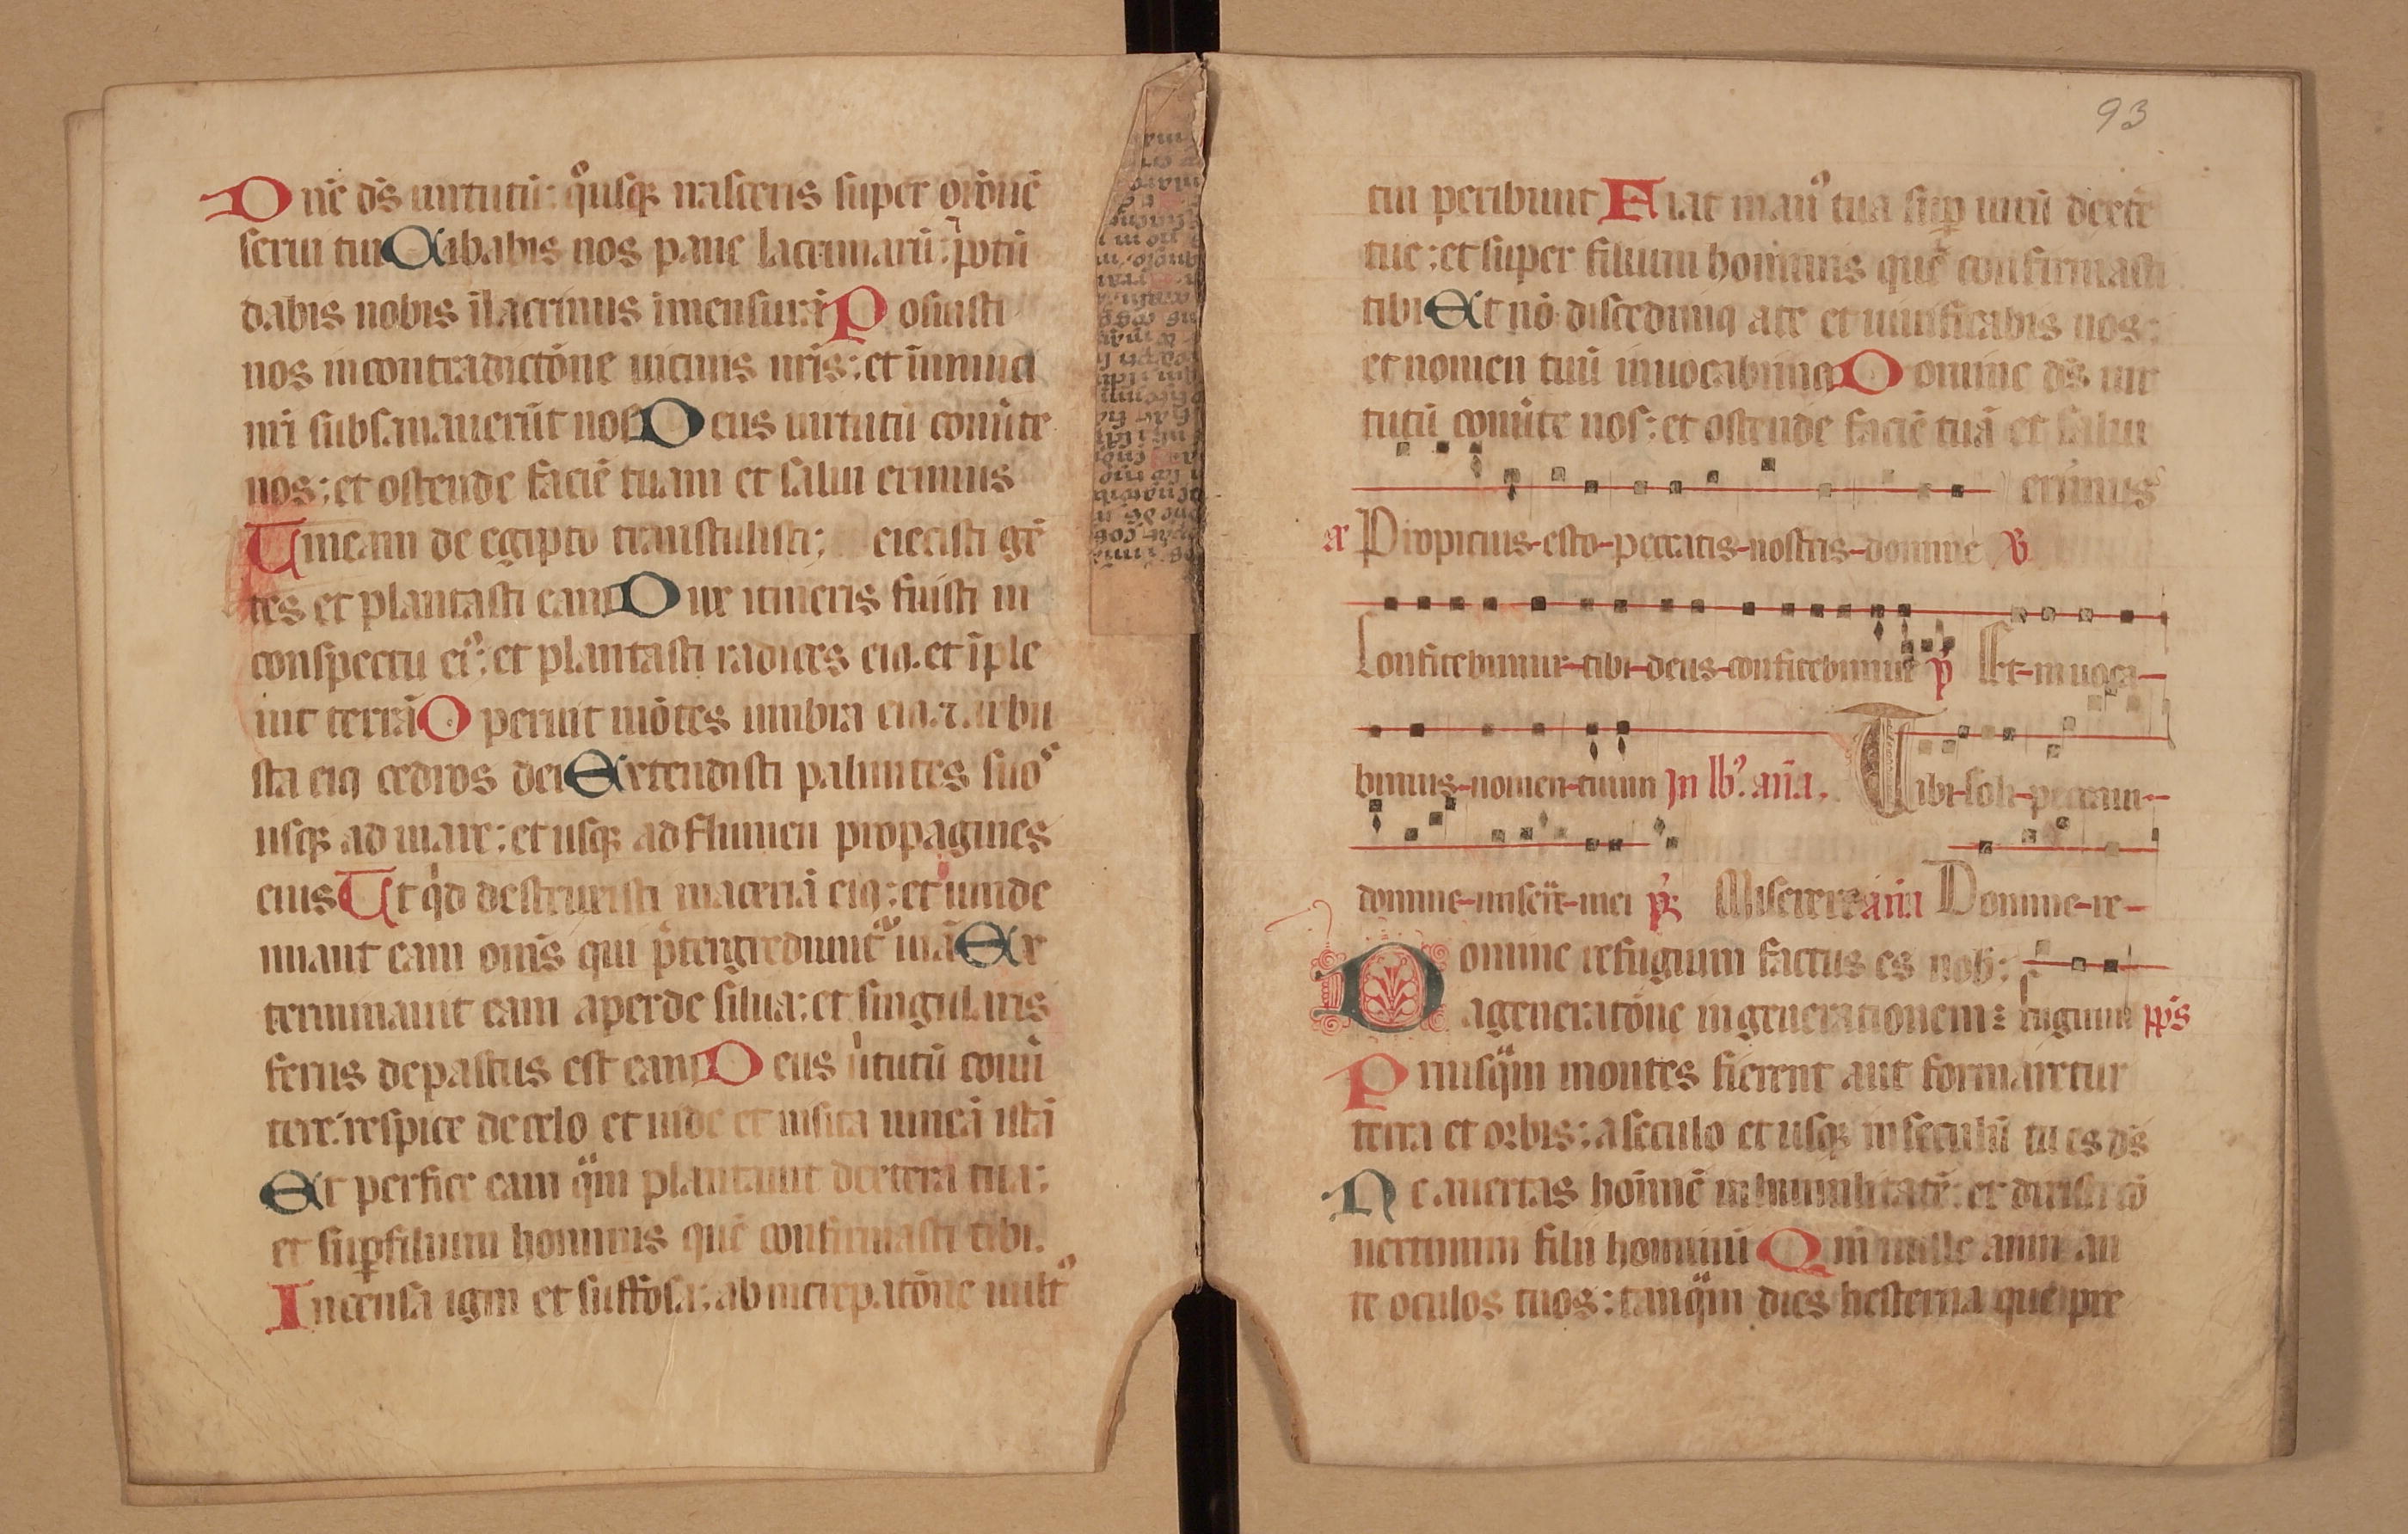 Dne ds uirtutu: qousq; irasceris super orone
serui tui Cibabis nos pane lacrimaru: potu
dabis nobis ilacrimis imensura Posuisti
nos incontradictone uicinis nris: et inimici
nri subsanauerut nos Deus uirtutu couute
nos: et ostende facie tuam et salui erimus
Uineam de egipto transtulisti; eiecisti ge
tes et plantasti eam Dux itineris fuisti in
conspectu ei9: et plantasti radices ei9. et iple
uit terra Operuit motes umbra ei9. 7 arbu
sta ei9 cedros dei Extendisti palmites suos
usq; ad mare: et usq; ad flumen propagines
eius Ut qd destruxisti maceria ei9: et uinde
miant eam oms qui pretergrediunt uia Ex
terminauit eam aper de silua: et singularis
ferus depastus est eam Deus uirtutu conu
tere: respice de celo et uide et uisita uinea ista
Et perfice eam qm plantauit dextera tua:
et sup filium hominis que confirmasti tibi.
Incensa igni et suffosa: ab increpatone uult9
93
tui peribunt Fiat man9 tua sup uiru dexte
tue: et super filium hominis que confirmasti
tibi Et no discedim9 a te et uiuificabis nos:
et nomen tuu inuocabim9 Domine ds uir
tutu couute nos: et ostende facie tua et salui
erimus
Propitius-esto-peccatis-nostris-domine V
Confitebimur-tibi-deus-confitebimur p Et-inuoca-
bimus-nomen-tuum In lb9. ana. Tibi-soli-peccaui-
domine-misere-mei ps Miserere ana Domine-re-
Domine refugium factus es nob:
ageneratone ingenerationem: fugium ps
Priusqm montes fierent aut formaretur
terra et orbis: a seculo et usq; in seculu tu es ds
Ne auertas homine in humilitate: et dixisti co
uertimini filii hominu Qm mille anni an
te oculos tuos: tanqm dies hesterna que pre